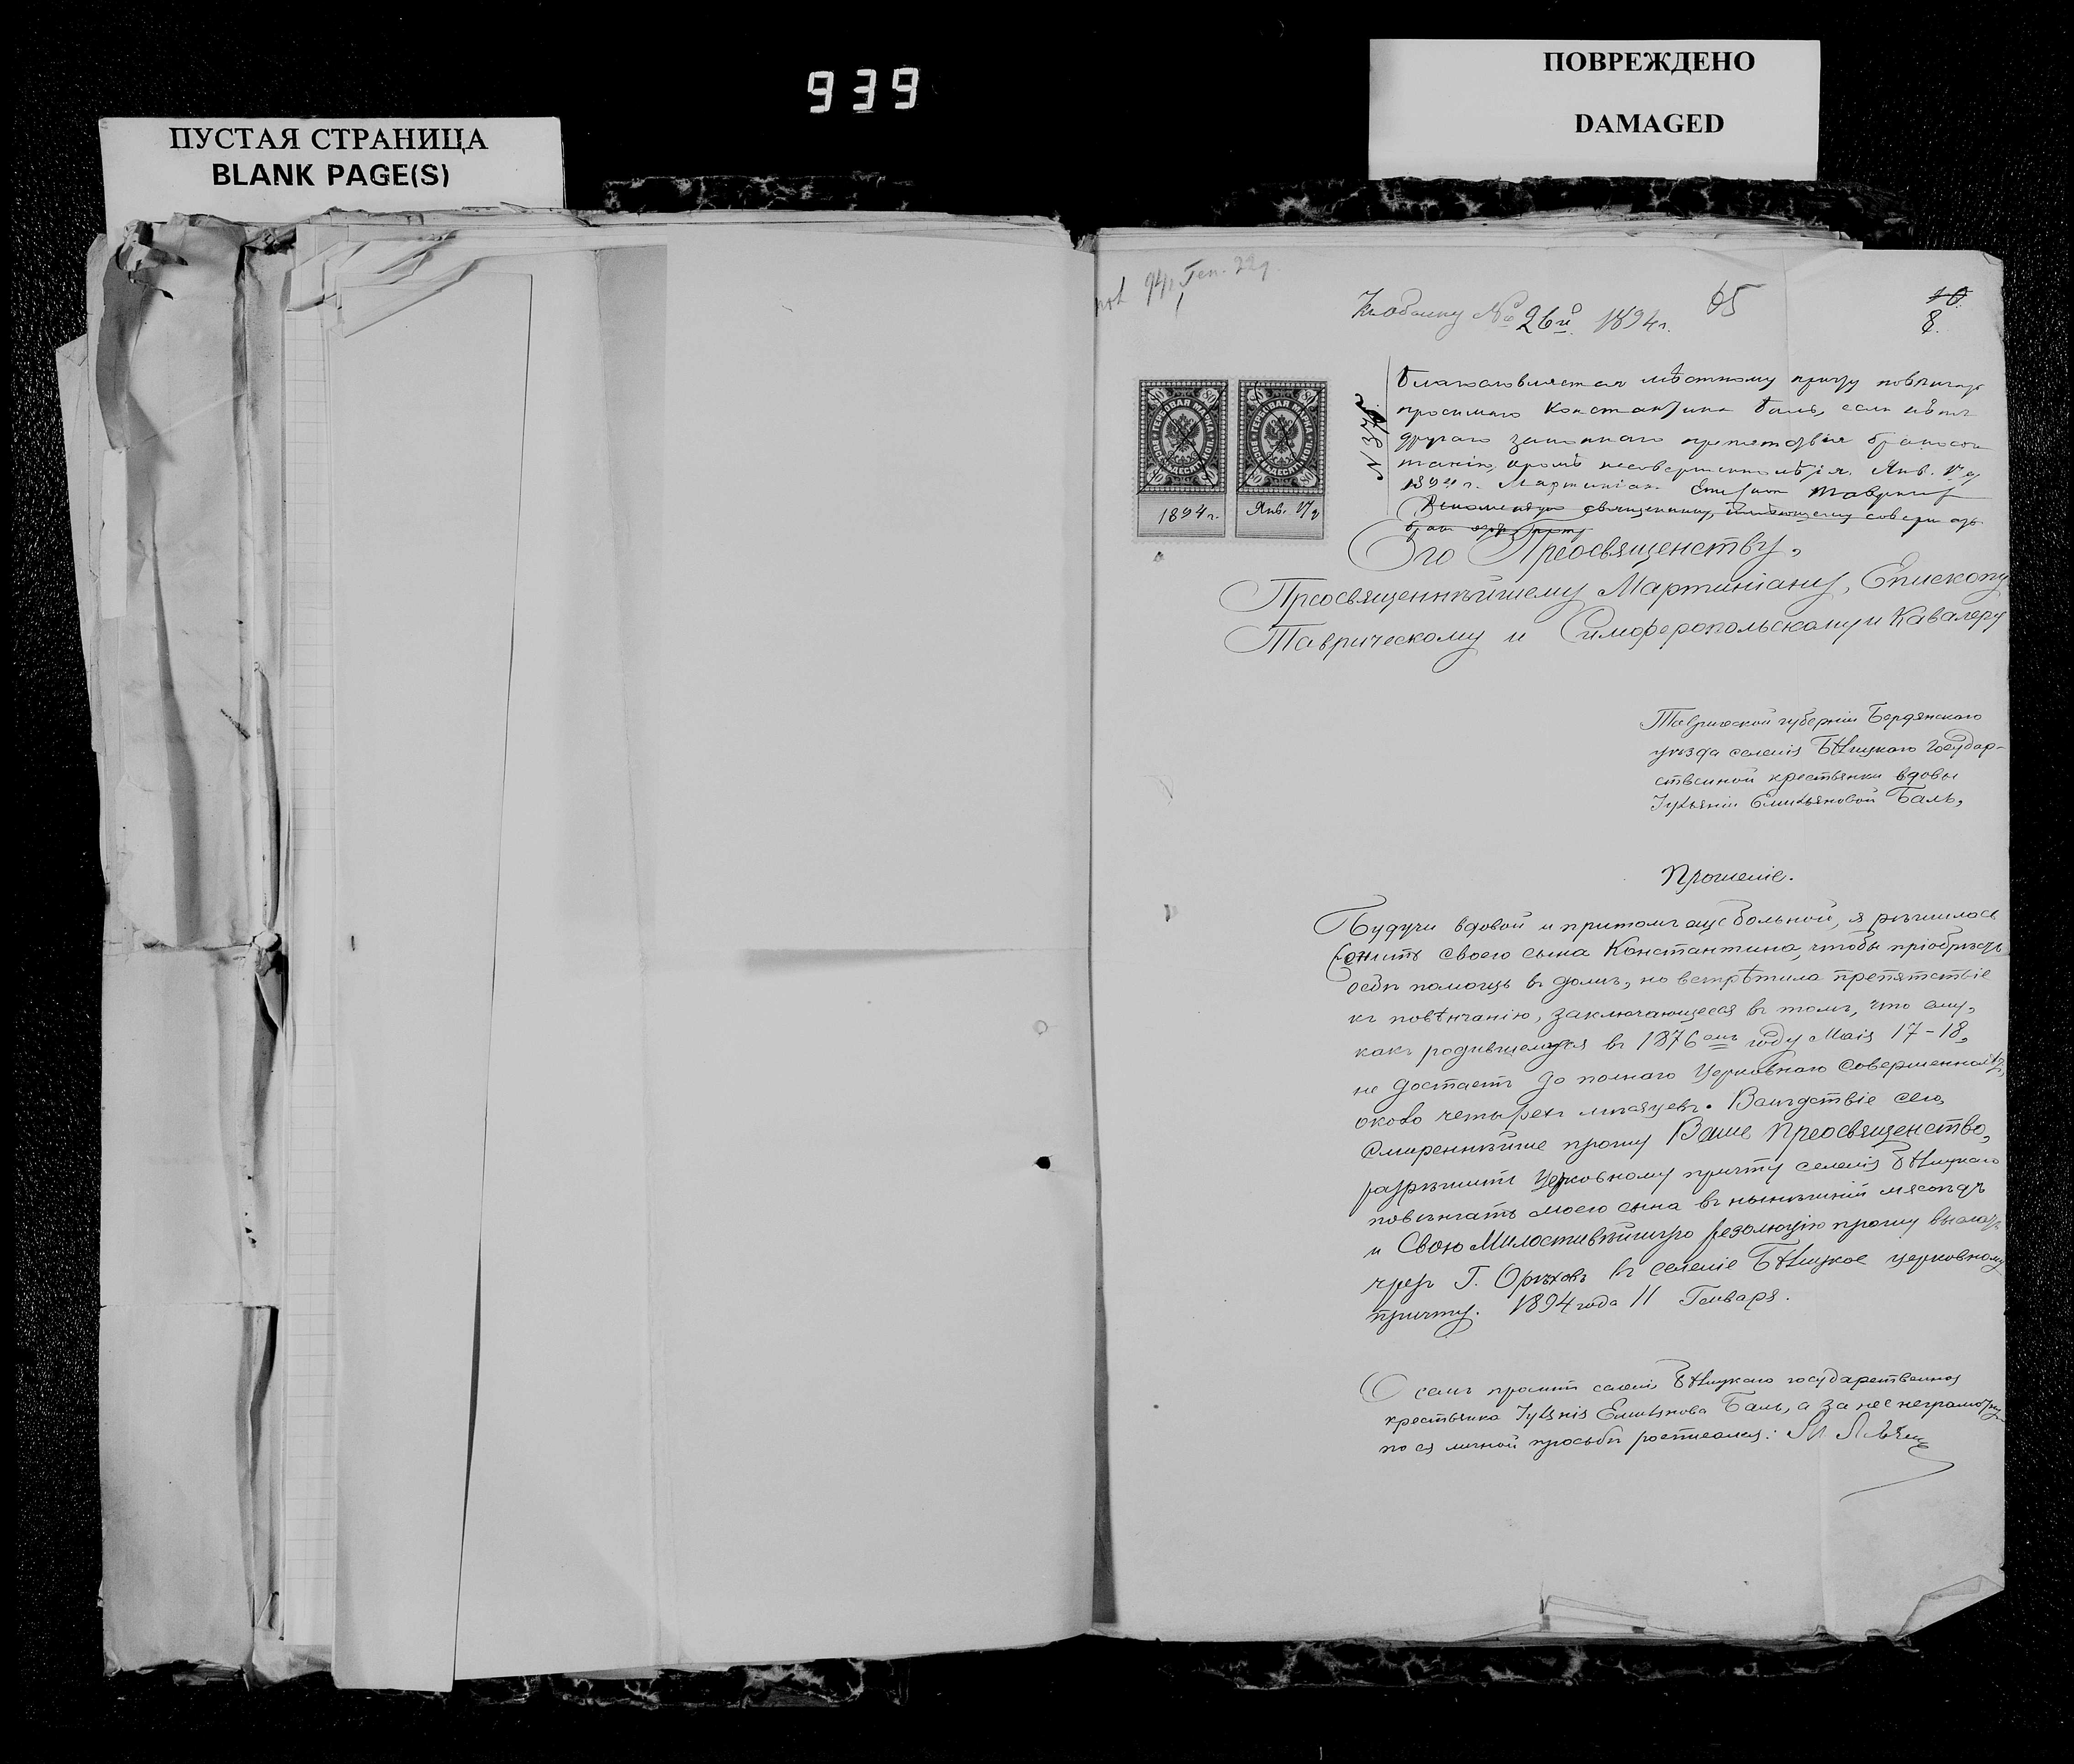 939
ПУСТАЯ СТРАНИЦА
BLANK PAGE(S)
ПОВРЕЖДЕНО
DAMAGED
Ген. 22д.
№ 26й. 1894г.
65
10.
8.
Благословляется мѣстному причту повѣнчать
просимаго Константина Баль, если нѣтъ
другаго законнаго препятствія бракосоче
танію, кромѣ несовершеннолѣтія. Янв. 17 д
1894 г. Мартиніанъ Епископ Таврич
священнику,
ГЕРБОВАЯ МАРКА
80
ГЕРБОВАЯ МАРКА
80
1894 г.
Янв. 17 д
Его Преосвященству,
Преосвященнѣйшему Мартиніану, Епископу
Таврическому и Симферопольскому и Кавалеру
Таврической губерніи Бердянскаго
уѣзда селенія Бѣлицкаго Государ-
ственной крестьянки вдовы
Іуліяніи Емиліяновой Баль,
Прошеніе.
Будучи вдовой и притомъ еще больной, я рѣшилась
женить своего сына Константина, чтобы пріобрѣсть
себѣ помощь въ домъ, но встрѣтила препятствіе
къ повѣнчанію, заключающееся въ томъ, что ему,
какъ родившемуся въ 1876 омъ году Маія 17-18,
не достаетъ до полнаго Церковнаго совершеннолѣт.
около четырехъ мѣсяцевъ. Вслѣдствіе сего,
Смиреннѣйше прошу Ваше Преосвященство,
разрѣшить Церковному причту селенія Бѣлицкаго
повѣнчать моего сына въ нынѣшній мясоѣдъ
и Свою Милостивѣйшую резолюцію прошу выслать
чрезъ Г. Орѣховъ въ селеніе Бѣлицкое церковному
причту. 1894 года 11 Генваря.
О семъ проситъ селенія Бѣлицкаго государственная
крестьянка Іуліянія Емиліянова Баль, а за нее неграмотную
по ея личной просьбѣ росписался: